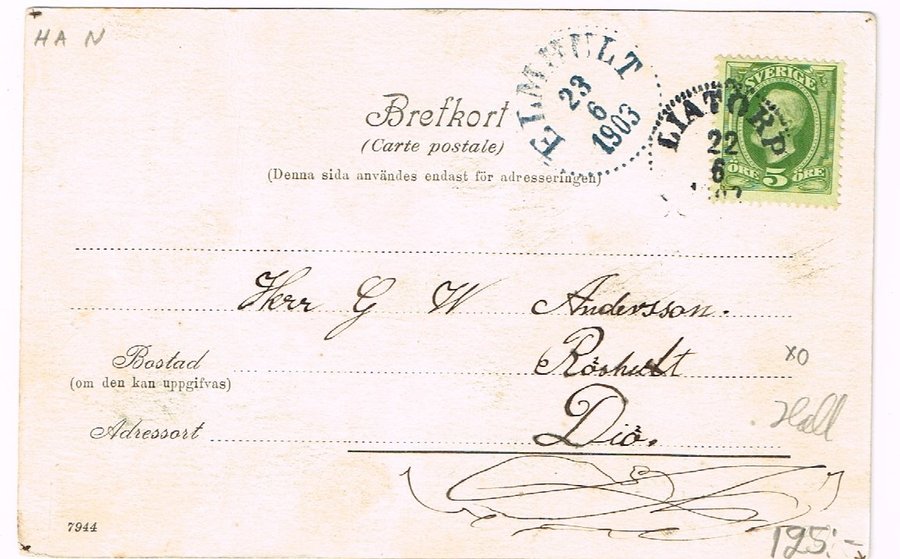 HA N
ELMHULT
23
6
1903
SVERIGE
LIATORP
22
6
ÖRE 5 ÖRE
Brefkort
(Carte postale)
(Denna sida användes endast för adresseringen)
Herr G W Andersson.
Röshult
XO
Bostad
(om den kan uppgifvas)
Hall
Adressort
Diö.
7944
195:-